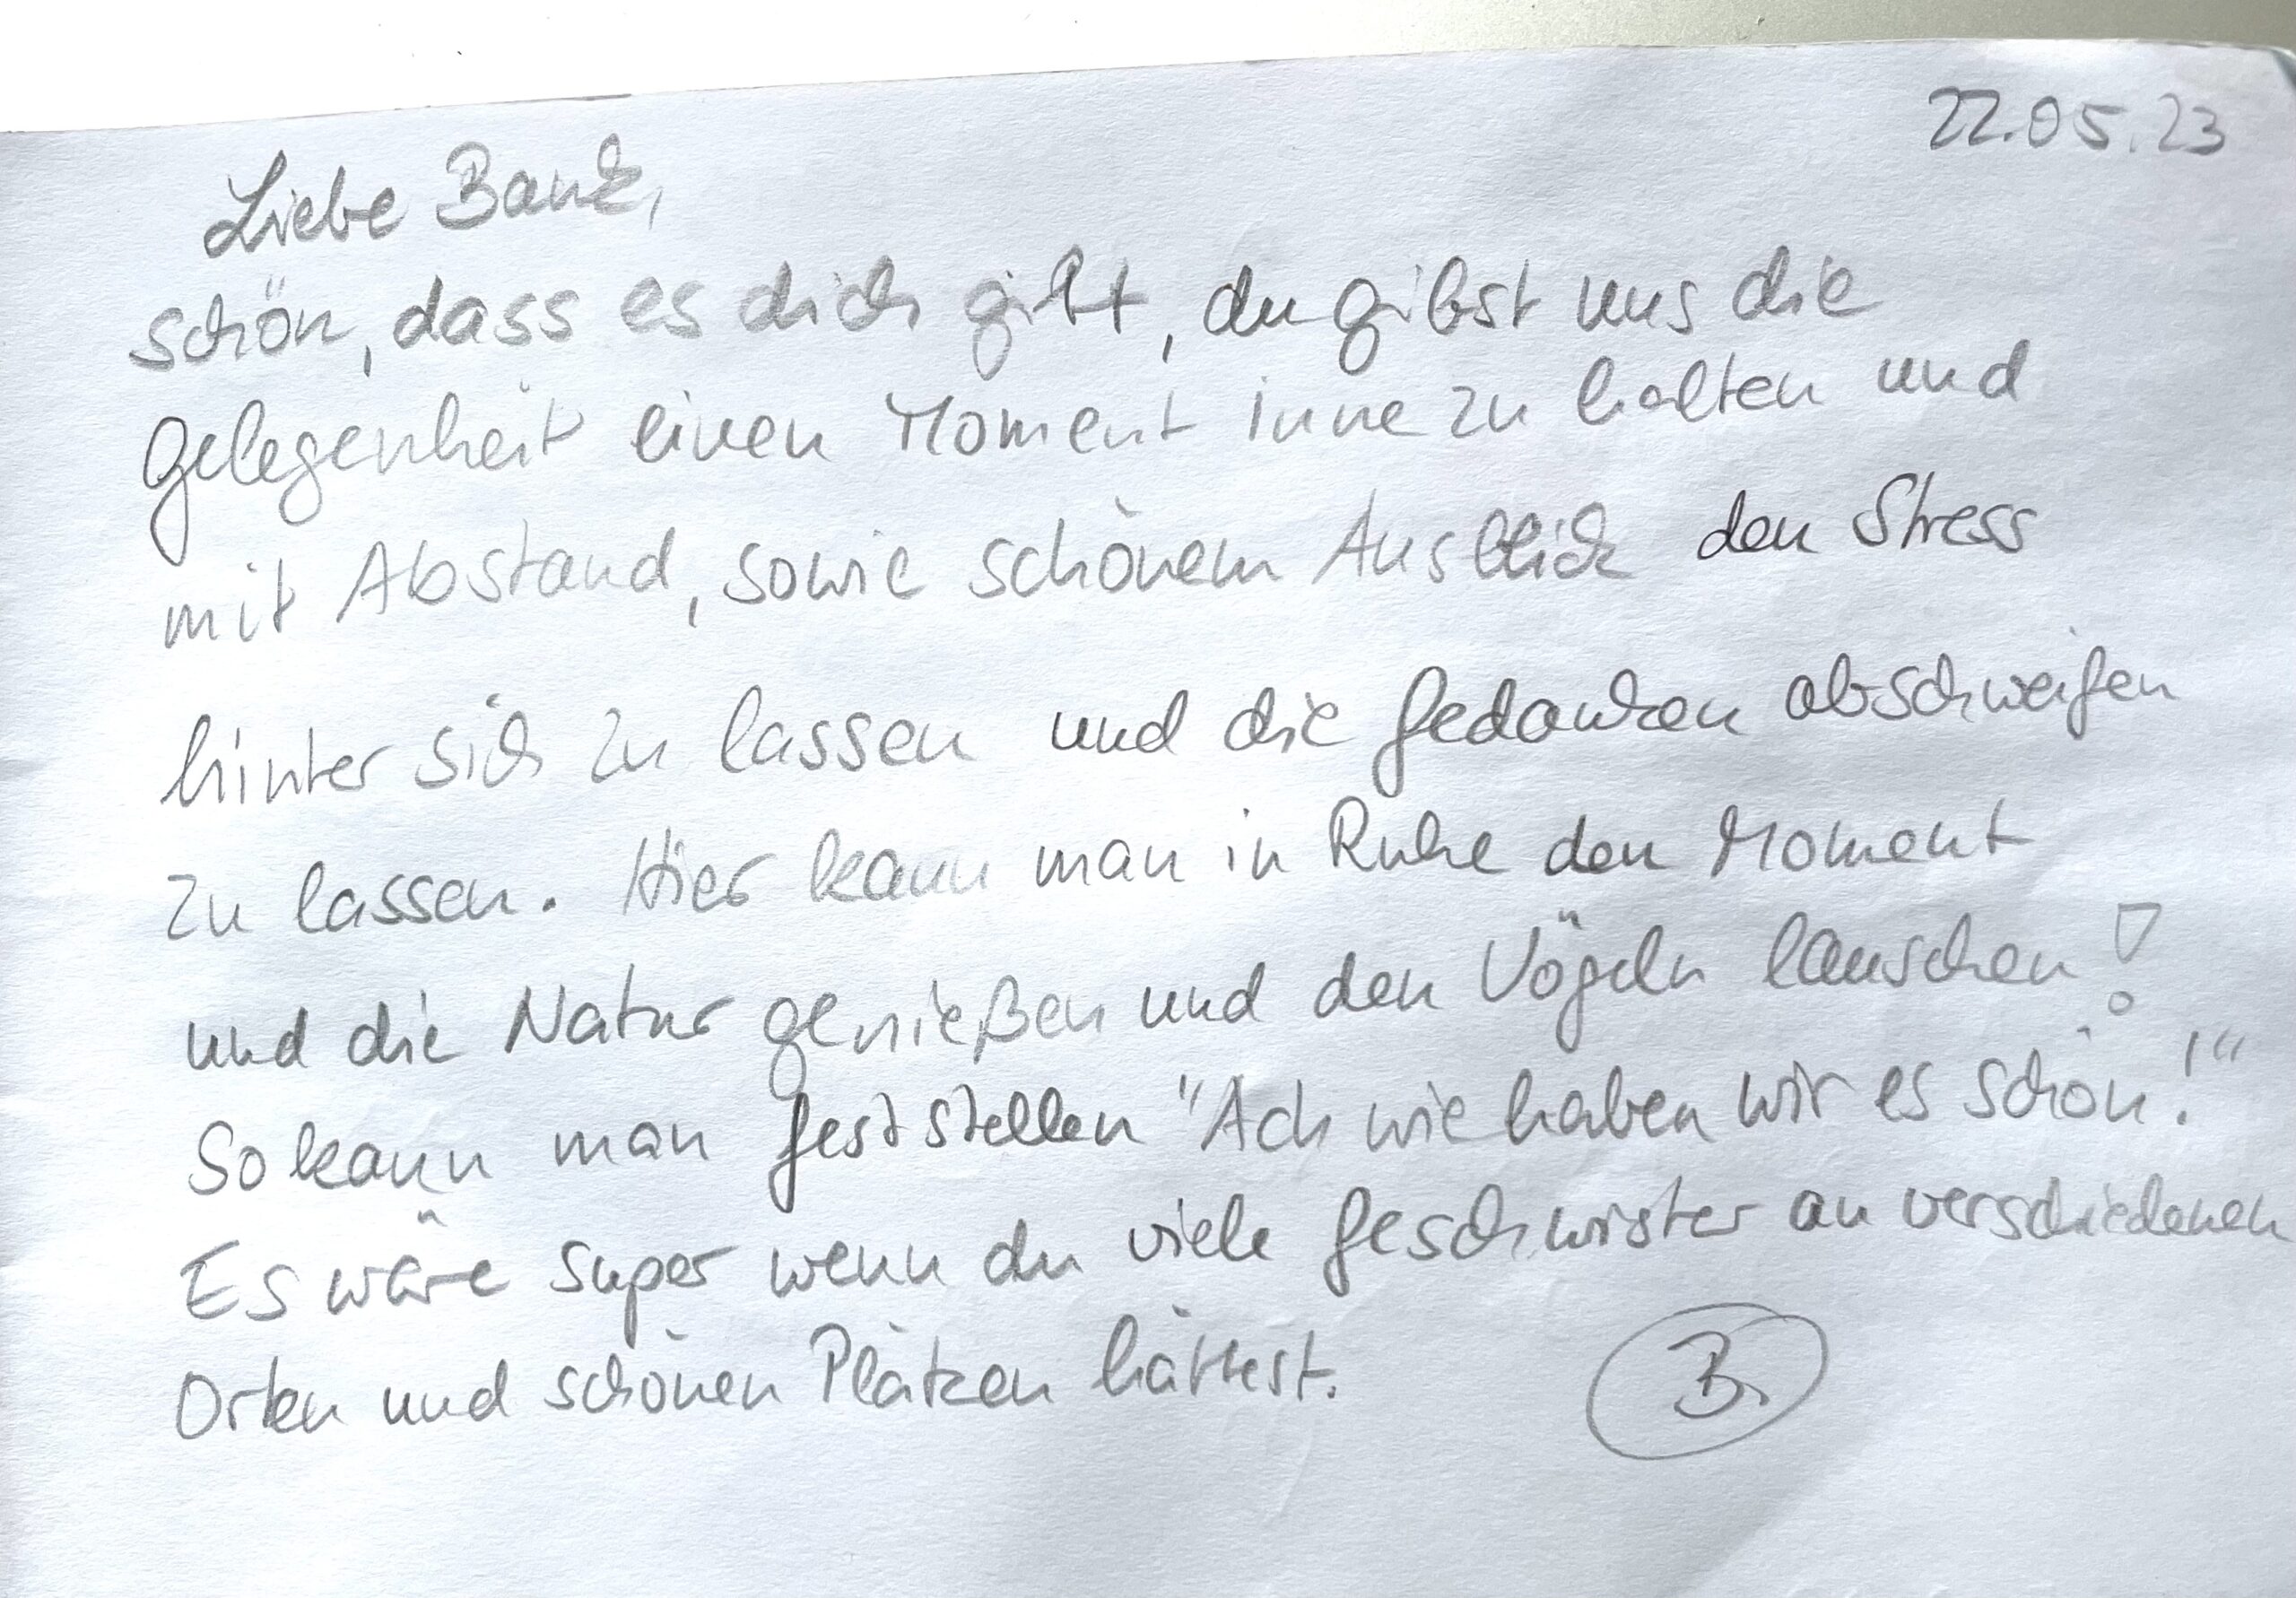 22.05.23
Liebe Bank,
schön, dass es dich gibt, du gibst uns die
Gelegenheit einen Moment inne zu halten und
mit Abstand, sowie schönem Ausblick den Stress
hinter sich zu lassen und die Gedanken abschweifen
zu lassen. Hier kann man in Ruhe den Moment
und die Natur genießen und den Vögeln lauschen!
So kann man feststellen "Ach wie haben wir es schön!"
Es wäre super wenn du viele Geschwister an verschiedenen
Orten und schönen Plätzen hättest.
B.